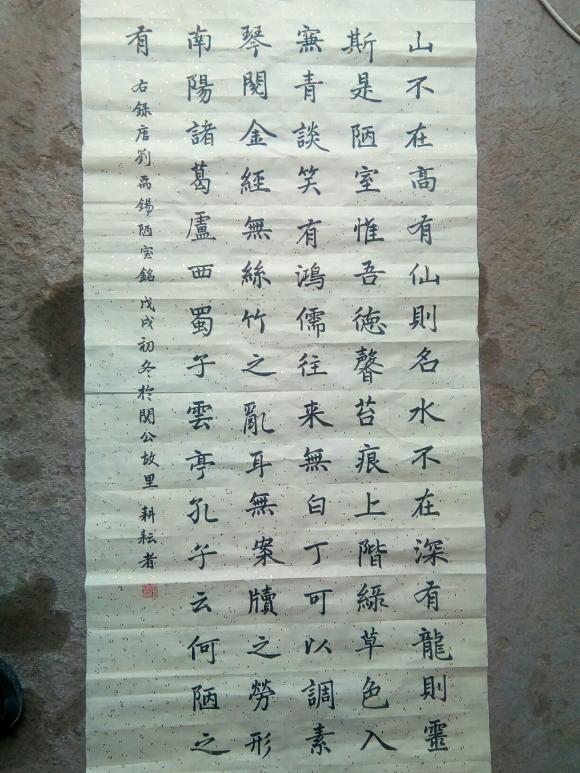 山不在高有仙則名水不在深有龍則靈
斯是陋室惟吾德馨苔痕上階綠草色入
青談笑有鴻儒往来無白丁可以調素
琴閱金經無絲竹之亂耳無案牘之勞形
南陽諸葛廬西蜀子雲亭孔子云何陋之
有
右錄唐劉禹錫陋室銘戊戌初冬於関公故里 耕耘者